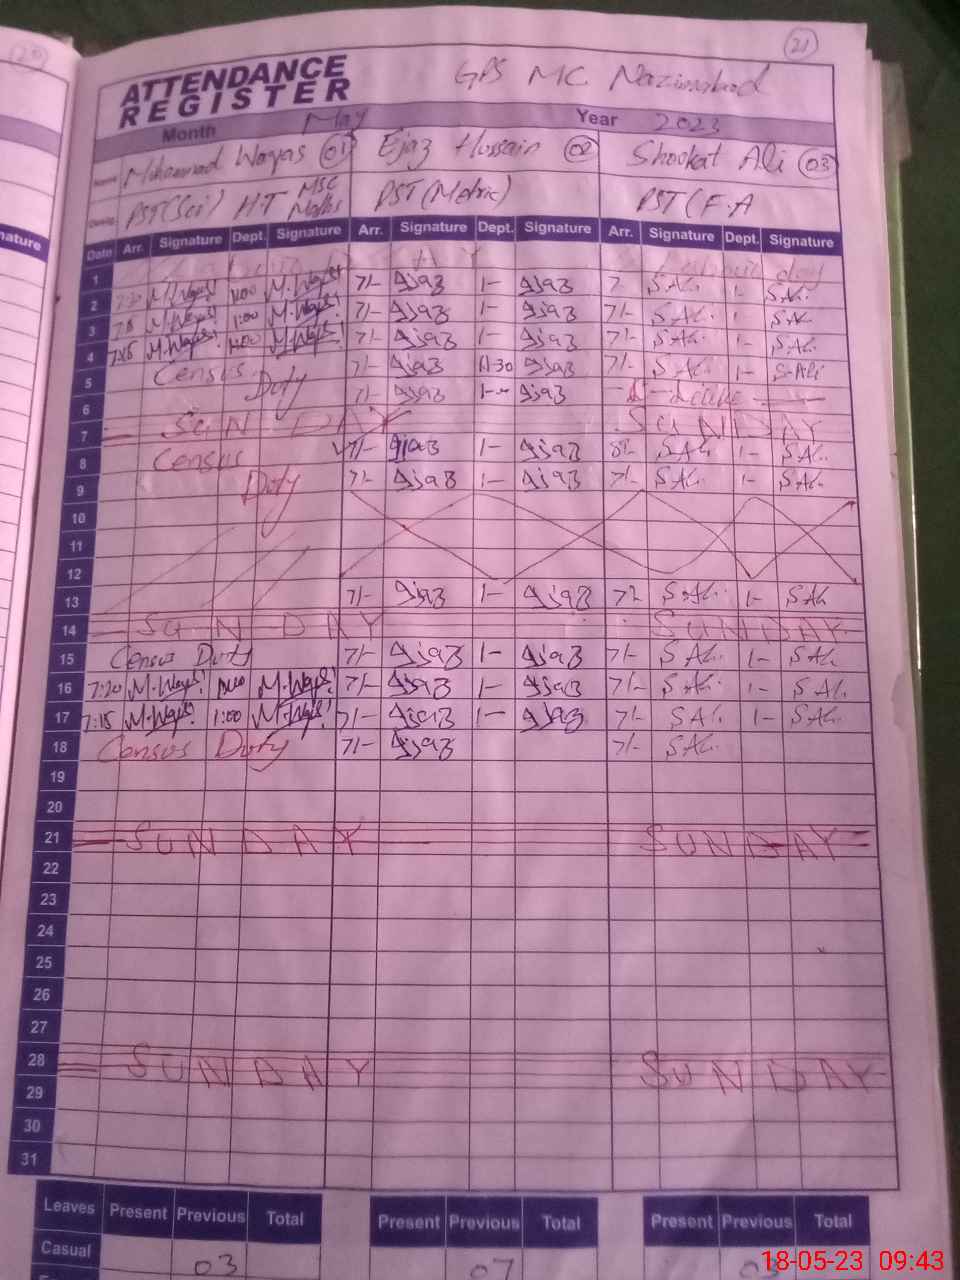 20
21
ATTENDANCE
REGISTER
GPS MC Nazimabad
Month May Year 2023
Name Mohammad Waqas 01 Ejaz Hussain 02 Shookat Ali 03
Desig. PST(Sci) HT MSC Maths PST (Metric) PST (F.A
nature
Date Arr. Signature Dept. Signature Arr. Signature Dept. Signature Arr. Signature Dept. Signature
1 day
2 M.Waqas! M.Waqas! 7/- Ajaz 1- Ajaz 7 S.Ali 1- S.Ali
3 M.Waqas! 1:00 M.Waqas! 7/- Ajaz 1- Ajaz 7/- S.Ali 1- S.Ali
4 7:15 M.Waqas! M.Waqas! 7/- Ajaz 1- Ajaz 7/- S.Ali 1- S.Ali
5 Census Duty 7/- Ajaz 11-30 Ajaz 7/- S.Ali 1- S.Ali
6 7/- Ajaz 1- Ajaz
7 SUNDAY SUNDAY
8 Census 7/- Ajaz 1- Ajaz 8/- S.Ali 1- S.Ali
9 Duty 7/- Ajaz 1- Ajaz 7/- S.Ali 1- S.Ali
10
11
12
13 7/- Ajaz 1- Ajaz S.Ali 1- S.Ali
14 SUNDAY SUNDAY
15 Census Duty 7/- Ajaz 1- Ajaz 7/- S.Ali 1- S.Ali
16 7:20 M.Waqas! M.Waqas! 7/- Ajaz 1- Ajaz 7/- S.Ali 1- S.Ali
17 7:15 M.Waqas! 1:00 M.Waqas! 7/- Ajaz 1- Ajaz 7/- S.Ali 1- S.Ali
18 Census Duty 7/- Ajaz 7/- S.Ali
19
20
21 SUNDAY SUNDAY
22
23
24
25
26
27
28 SUNDAY SUNDAY
29
30
31
Leaves Present Previous Total Present Previous Total Present Previous Total
Casual 03 07
18-05-23 09:43